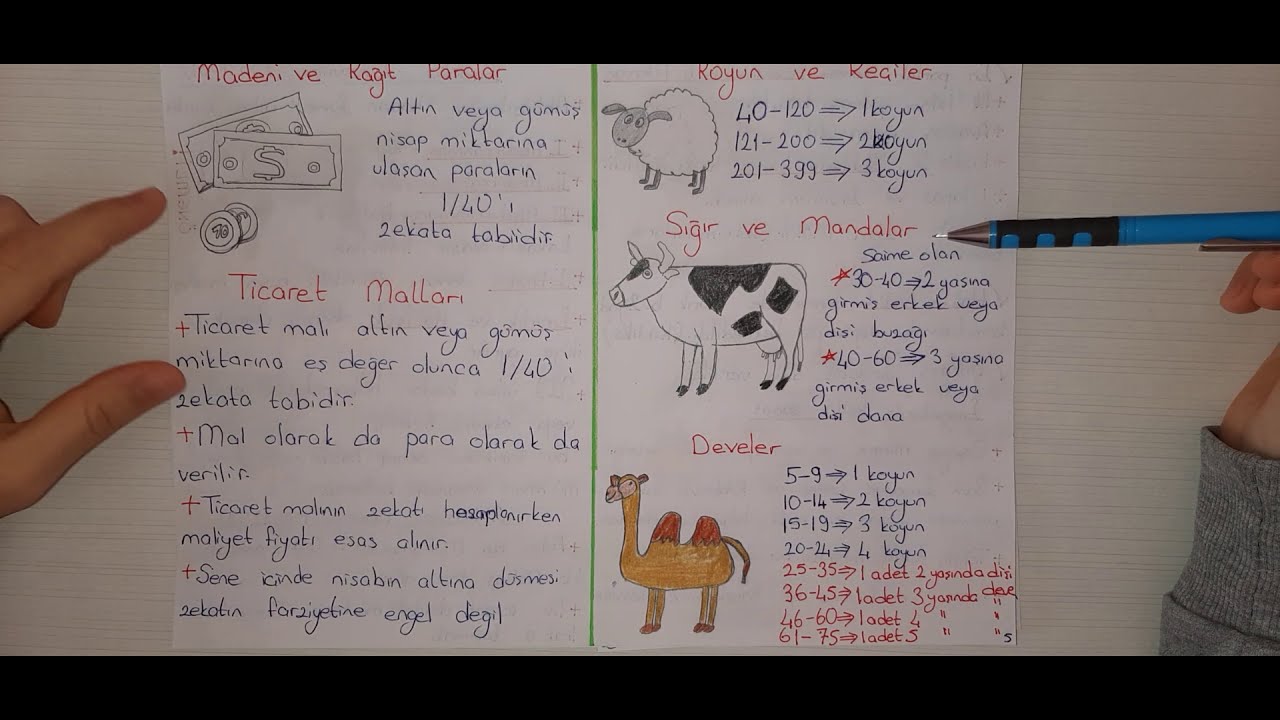 Madeni ve Kağıt Paralar
Altın veya gümüş
nisap miktarına
ulaşan paraların
1/40'ı
zekata tabiidir.
Ticaret Malları
+Ticaret malı altın veya gümüş
miktarına eş değer olunca 1/40'i
zekata tabidir.
+Mal olarak da para olarak da
verilir.
+Ticaret malının zekatı hesaplanırken
maliyet fiyatı esas alınır.
+Sene içinde nisabın altına düşmesi
zekatın farziyetine engel değil
Koyun ve Keçiler
40-120 ⇒ 1 koyun
121-200 ⇒ 2 koyun
201-399 ⇒ 3 koyun
Sığır ve Mandalar
Saime olan
★30-40⇒2 yaşına
girmiş erkek veya
dişi buzağı
★40-60⇒ 3 yaşına
girmiş erkek veya
dişi dana
Develer
5-9⇒ 1 koyun
10-14⇒ 2 koyun
15-19⇒ 3 koyun
20-24⇒ 4 koyun
25-35⇒ 1 adet 2 yaşında dişi
36-45⇒ 1 adet 3 yaşında deve
46-60⇒ 1 adet 4 " "
61-75⇒ 1 adet 5 " "
5
$